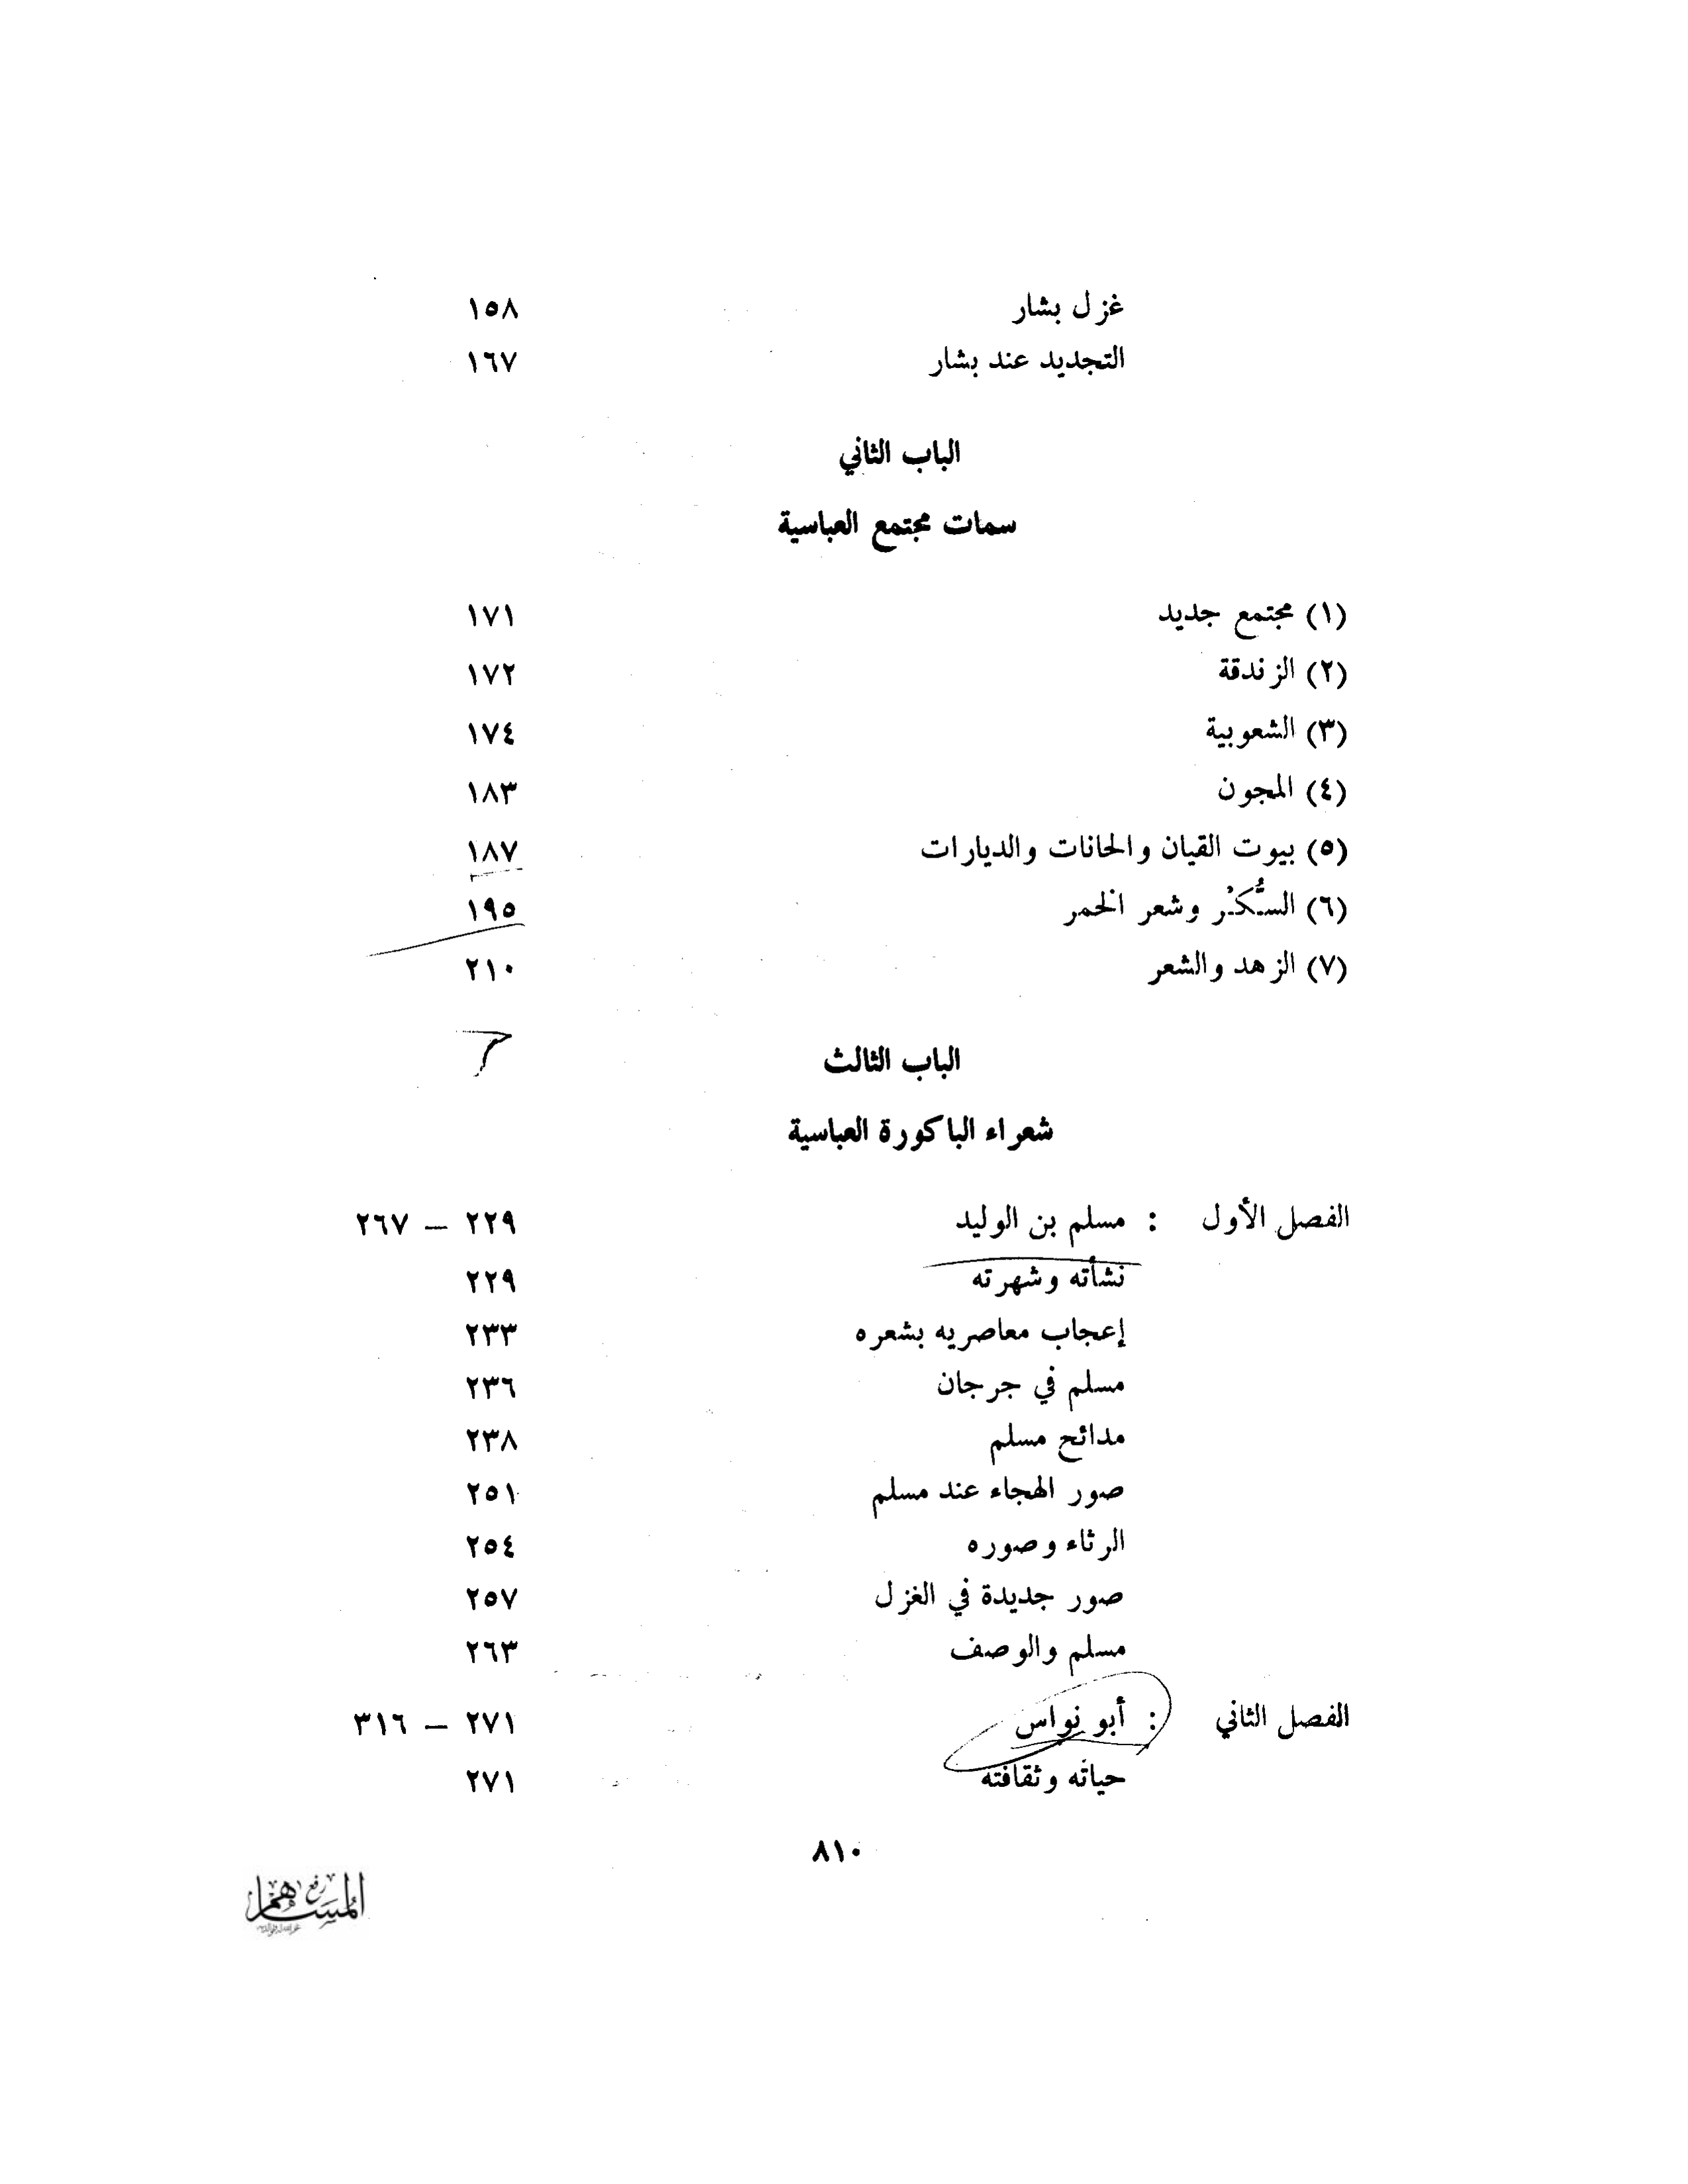 غزل بشار ١٥٨
التجديد عند بشار ١٦٧
الباب الثاني
سمات مجتمع العباسية
(١) مجتمع جديد ١٧١
(٢) الزندقة ١٧٢
(٣) الشعوبية ١٧٤
(٤) المجون ١٨٣
(٥) بيوت القيان والحانات والديارات ١٨٧
(٦) السُّكْر وشعر الخمر ١٩٥
(٧) الزهد والشعر ٢١٠
الباب الثالث
شعراء الباكورة العباسية
الفصل الأول : مسلم بن الوليد ٢٢٩ – ٢٦٧
نشأته وشهرته ٢٢٩
إعجاب معاصريه بشعره ٢٣٣
مسلم في جرجان ٢٣٦
مدائح مسلم ٢٣٨
صور الهجاء عند مسلم ٢٥١
الرثاء وصوره ٢٥٤
صور جديدة في الغزل ٢٥٧
مسلم والوصف ٢٦٣
الفصل الثاني : أبو نواس ٢٧١ – ٣١٦
حياته وثقافته ٢٧١
٨١٠